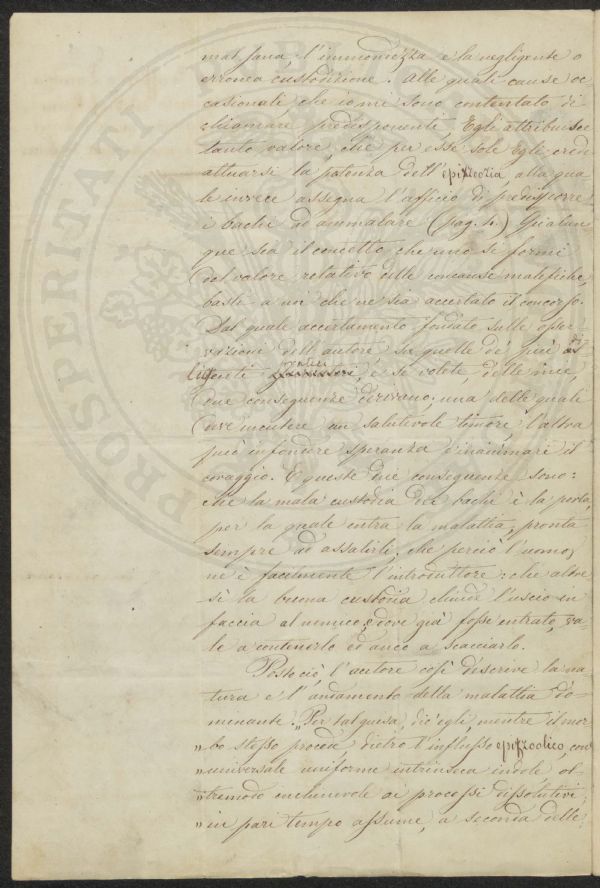 mal sana, l'immondezza e la negligente o
erronea custodizione. Alle quali cause oc
casionali, che io mi sono contentato di
chiamare predisponenti, Egli attribuisce
tanto valore, che per esse sole Egli crede
attuarsi la potenza dell'epizoozia, alla qua
le invece assegna l'afficio di predisporre
i bachi ad ammalare (pag. 4.) Qualun
que sia il concetto che uno si formi
del valore relativo delle concause malefiche,
basti a noi che ne sia accertato il concorso.
Dal quale accertamento fondato sulle osser
vazioni dell'autore su quelle de' più di
ligenti pratici, e se volete, delle mie,
due conseguenze derivano, una delle quali
deve incutere un salutevole timore, l'altra
può infondere speranza e rianimare il
coraggio. E queste due conseguenze sono:
che la mala custodia dei bachi è la porta,
per la quale entra la malattia, pronta
sempre ad assalirli; che perciò l'uomo
ne è facilmente l'introduttore: che altre
sì la buona custodia chiude l'uscio in
faccia al nemico; e dove già fosse entrato, va
le a contenerlo ed anco a scacciarlo.
Posto ciò, l'autore così descrive la na
tura e l'andamento della malattia do-
minante. "Per tal guisa, dic'egli, mentre il mor
" bo stesso procede dietro l'influsso epizootico, con
" universale uniforme intrinseca indole, ol-
" tremodo inchinevole ai processi dissolutivi,
" in pari tempo assume, a seconda delle
PROSPERITATI